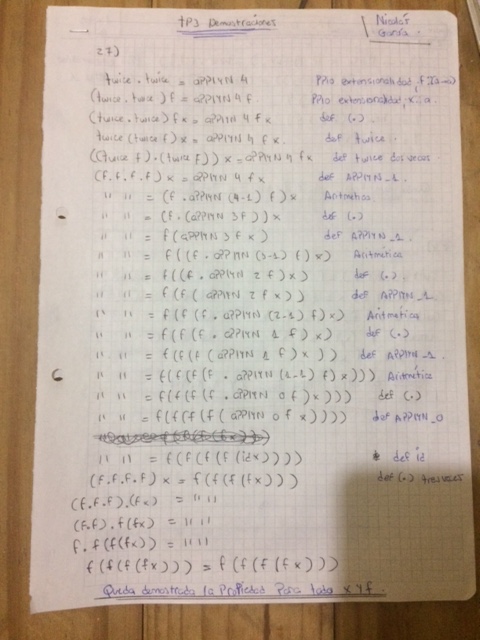 TP3 Demostraciones
Nicolás
García
27)
twice . twice = applyN 4 Ppio extensionalidad, f :: (a->a)
(twice . twice) f = applyN 4 f Ppio extensionalidad, x :: a
(twice . twice) f x = applyN 4 f x def (.)
twice (twice f) x = applyN 4 f x def twice
((twice f) . (twice f)) x = applyN 4 f x def twice dos veces
(f.f.f.f) x = applyN 4 f x def APPLYN_2
" " = (f . applyN (4-1) f) x Aritmetica
" " = (f . (applyN 3 f x def (.)
" " = f (applyN 3 f x) def APPLYN_2.
" " = f ((f . applyN (3-1) f) x) Aritmetica
" " = f (f . applyN 2 f x) def (.)
" " = f (f (applyN 2 f x)) def APPLYN_2
" " = f (f (f . applyN (2-1) f) x) Aritmetica
" " = f (f (f . applyN 1 f) x) def (.)
" " = f (f (f (applyN 1 f x))) def APPLYN_2.
" " = f (f (f (f . applyN (1-1) f) x))) Aritmetica
" " = f (f (f (f . applyN 0 f) x))) def (.)
" " = f (f (f (f (applyN 0 f x)))) def APPLYN_0
" " = f (f (f (f (id x)))) def id
(f.f.f.f) x = f (f (f (f x))) def (.) tres veces
(f.f.f) . (f x) = " "
(f.f) . f (f x) = " "
f . f (f (f x)) = " "
f (f (f (f x))) = f (f (f (f x)))
Queda demostrada la propiedad para todo x y f.